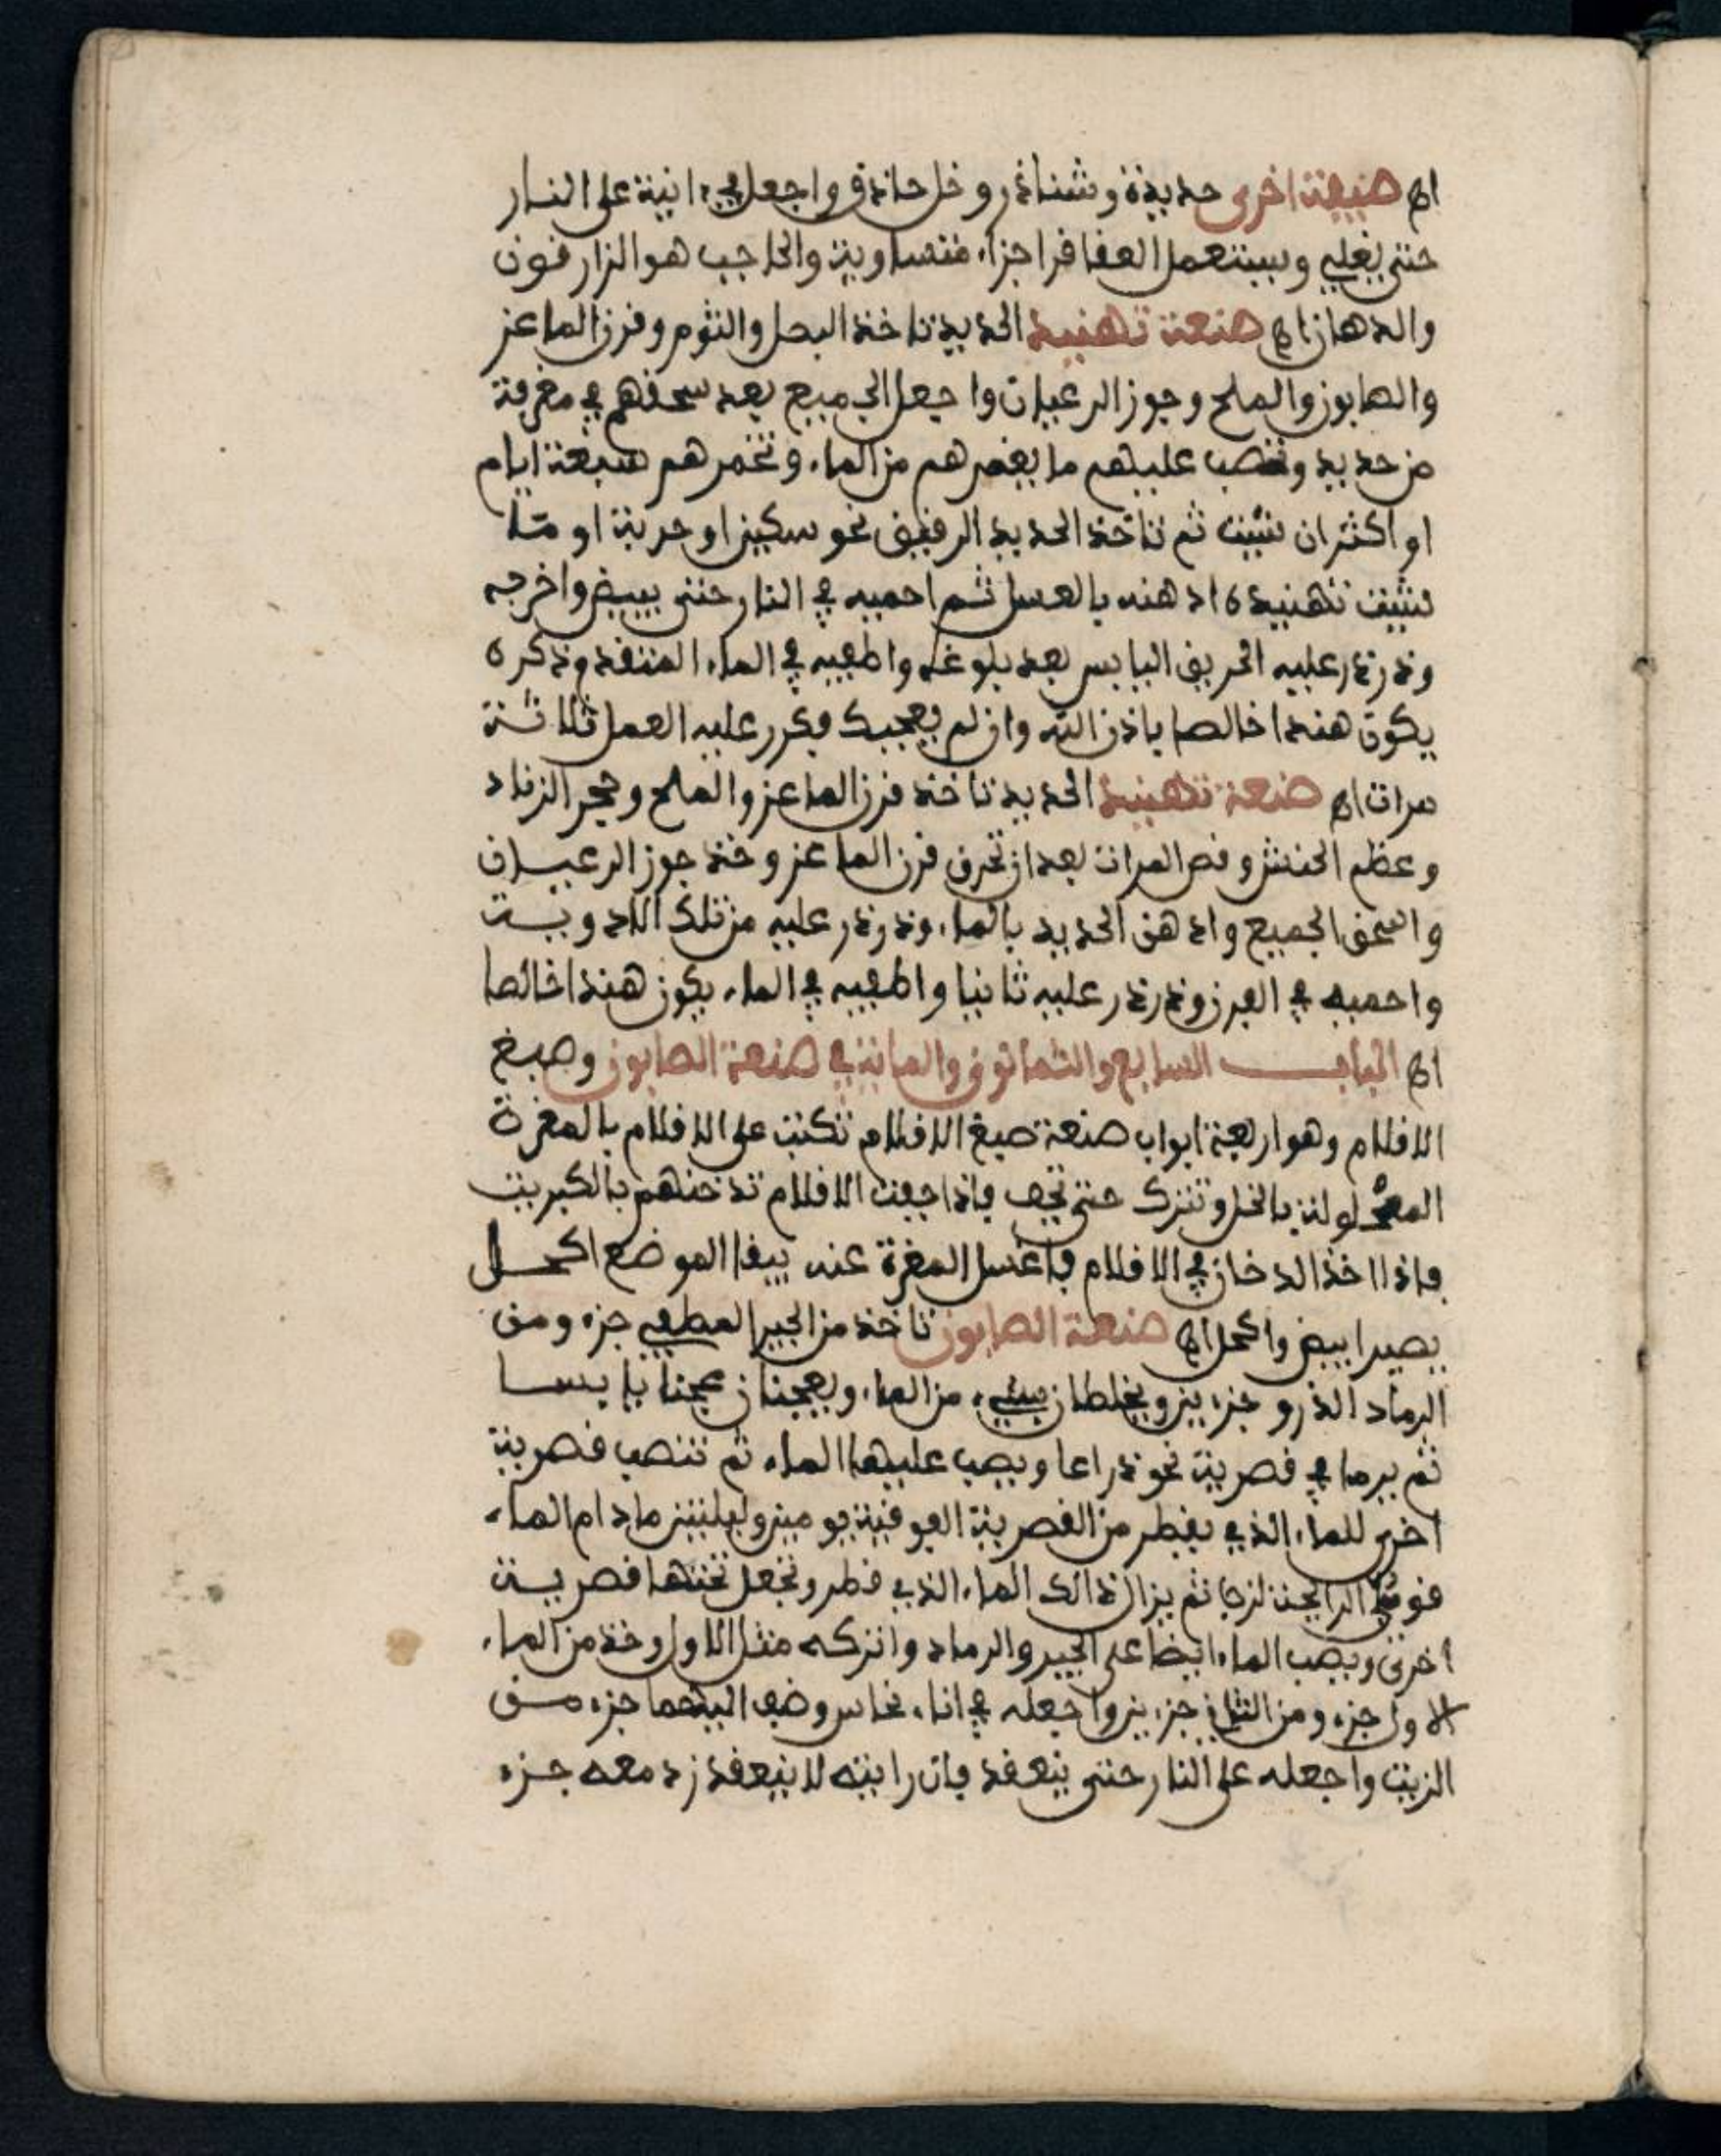 اه صنعة اخرى حديدة وشناذر وخل حاذق واجعل في ءانية على النار
حتى يغلي ويستعمل العقاقر اجزاء متساوية والحاجب هو الزارقون
والدهان اه صنعة تهنيد الحديد تاخذ البصل والثوم وقرن الماعز
والصابون والملح وجوز الرعيان واجعل الجميع بعد سحقهم في مغرفة
من حديد وتصب عليهم ما يغمرهم من الماء وتخمرهم سبعة ايام
او اكثر ان شيت ثم تاخذ الحديد الرقيق نحو سكين او حربة او ما
شيت تهنيده ادهنه بالعسل ثم احميه في النار حتى يبيض واخرجه
وذرذر عليه الحريق اليابس بعد بلوغه واطفيه في الماء المتقدم ذكره
يكون هندا خالصا باذن الله وان لم يعجبك فكرر عليه العمل ثلاثة
مرات اه صنعة تهنيد الحديد تاخذ قرن الماعز والملح وحجر الزناد
وعظم الحنش وفص المرات بعد ان تحرق قرن الماعز وخذ جوز الرعيان
واسحق الجميع وادهن الحديد بالماء وذرذر عليه من تلك الادوية
واحميه في الفرن وذرذر عليه ثانيا واطفيه في الماء يكون هندا خالصا
اه الباب السابع والثمانون والماية في صنعة الصابون وصبغ
الاقلام وهو اربعة ابواب صنعة صبغ الاقلام تكتب على الاقلام بالمغرة
المحلولة بالخل وتترك حتى تجف فاذا جفت الاقلام تدخنهم بالكبريت
فاذا اخذ الدخان في الاقلام فاغسل المغرة عنه يبقا الموضع اكحل
يصير ابيض واكحل اه صنعة الصابون تاخذ من الجير المطفي جزء ومن
الرماد الذرو جزءين ويخلطان بشيء من الماء ويعجنان عجنا يابسا
ثم يرما في قصرية نحو ذراعا ويصب عليهما الماء ثم تنصب قصرية
اخرى للماء الذي يقطر من القصرية الفوقية يومين وليلتين مادام الماء
قوي الرايحة لزجا ثم يزال ذالك الماء الذي قطر وتجعل تحتها قصرية
اخرى ويصب الماء ايضا على الجير والرماد واتركه مثل الاول وخذ من الماء
الاول جزء ومن الثاني جزءين واجعله في اناء نحاس وضف اليهما جزء من
الزيت واجعله على النار حتى ينعقد فان رايته لا ينعقد زد معه جزء